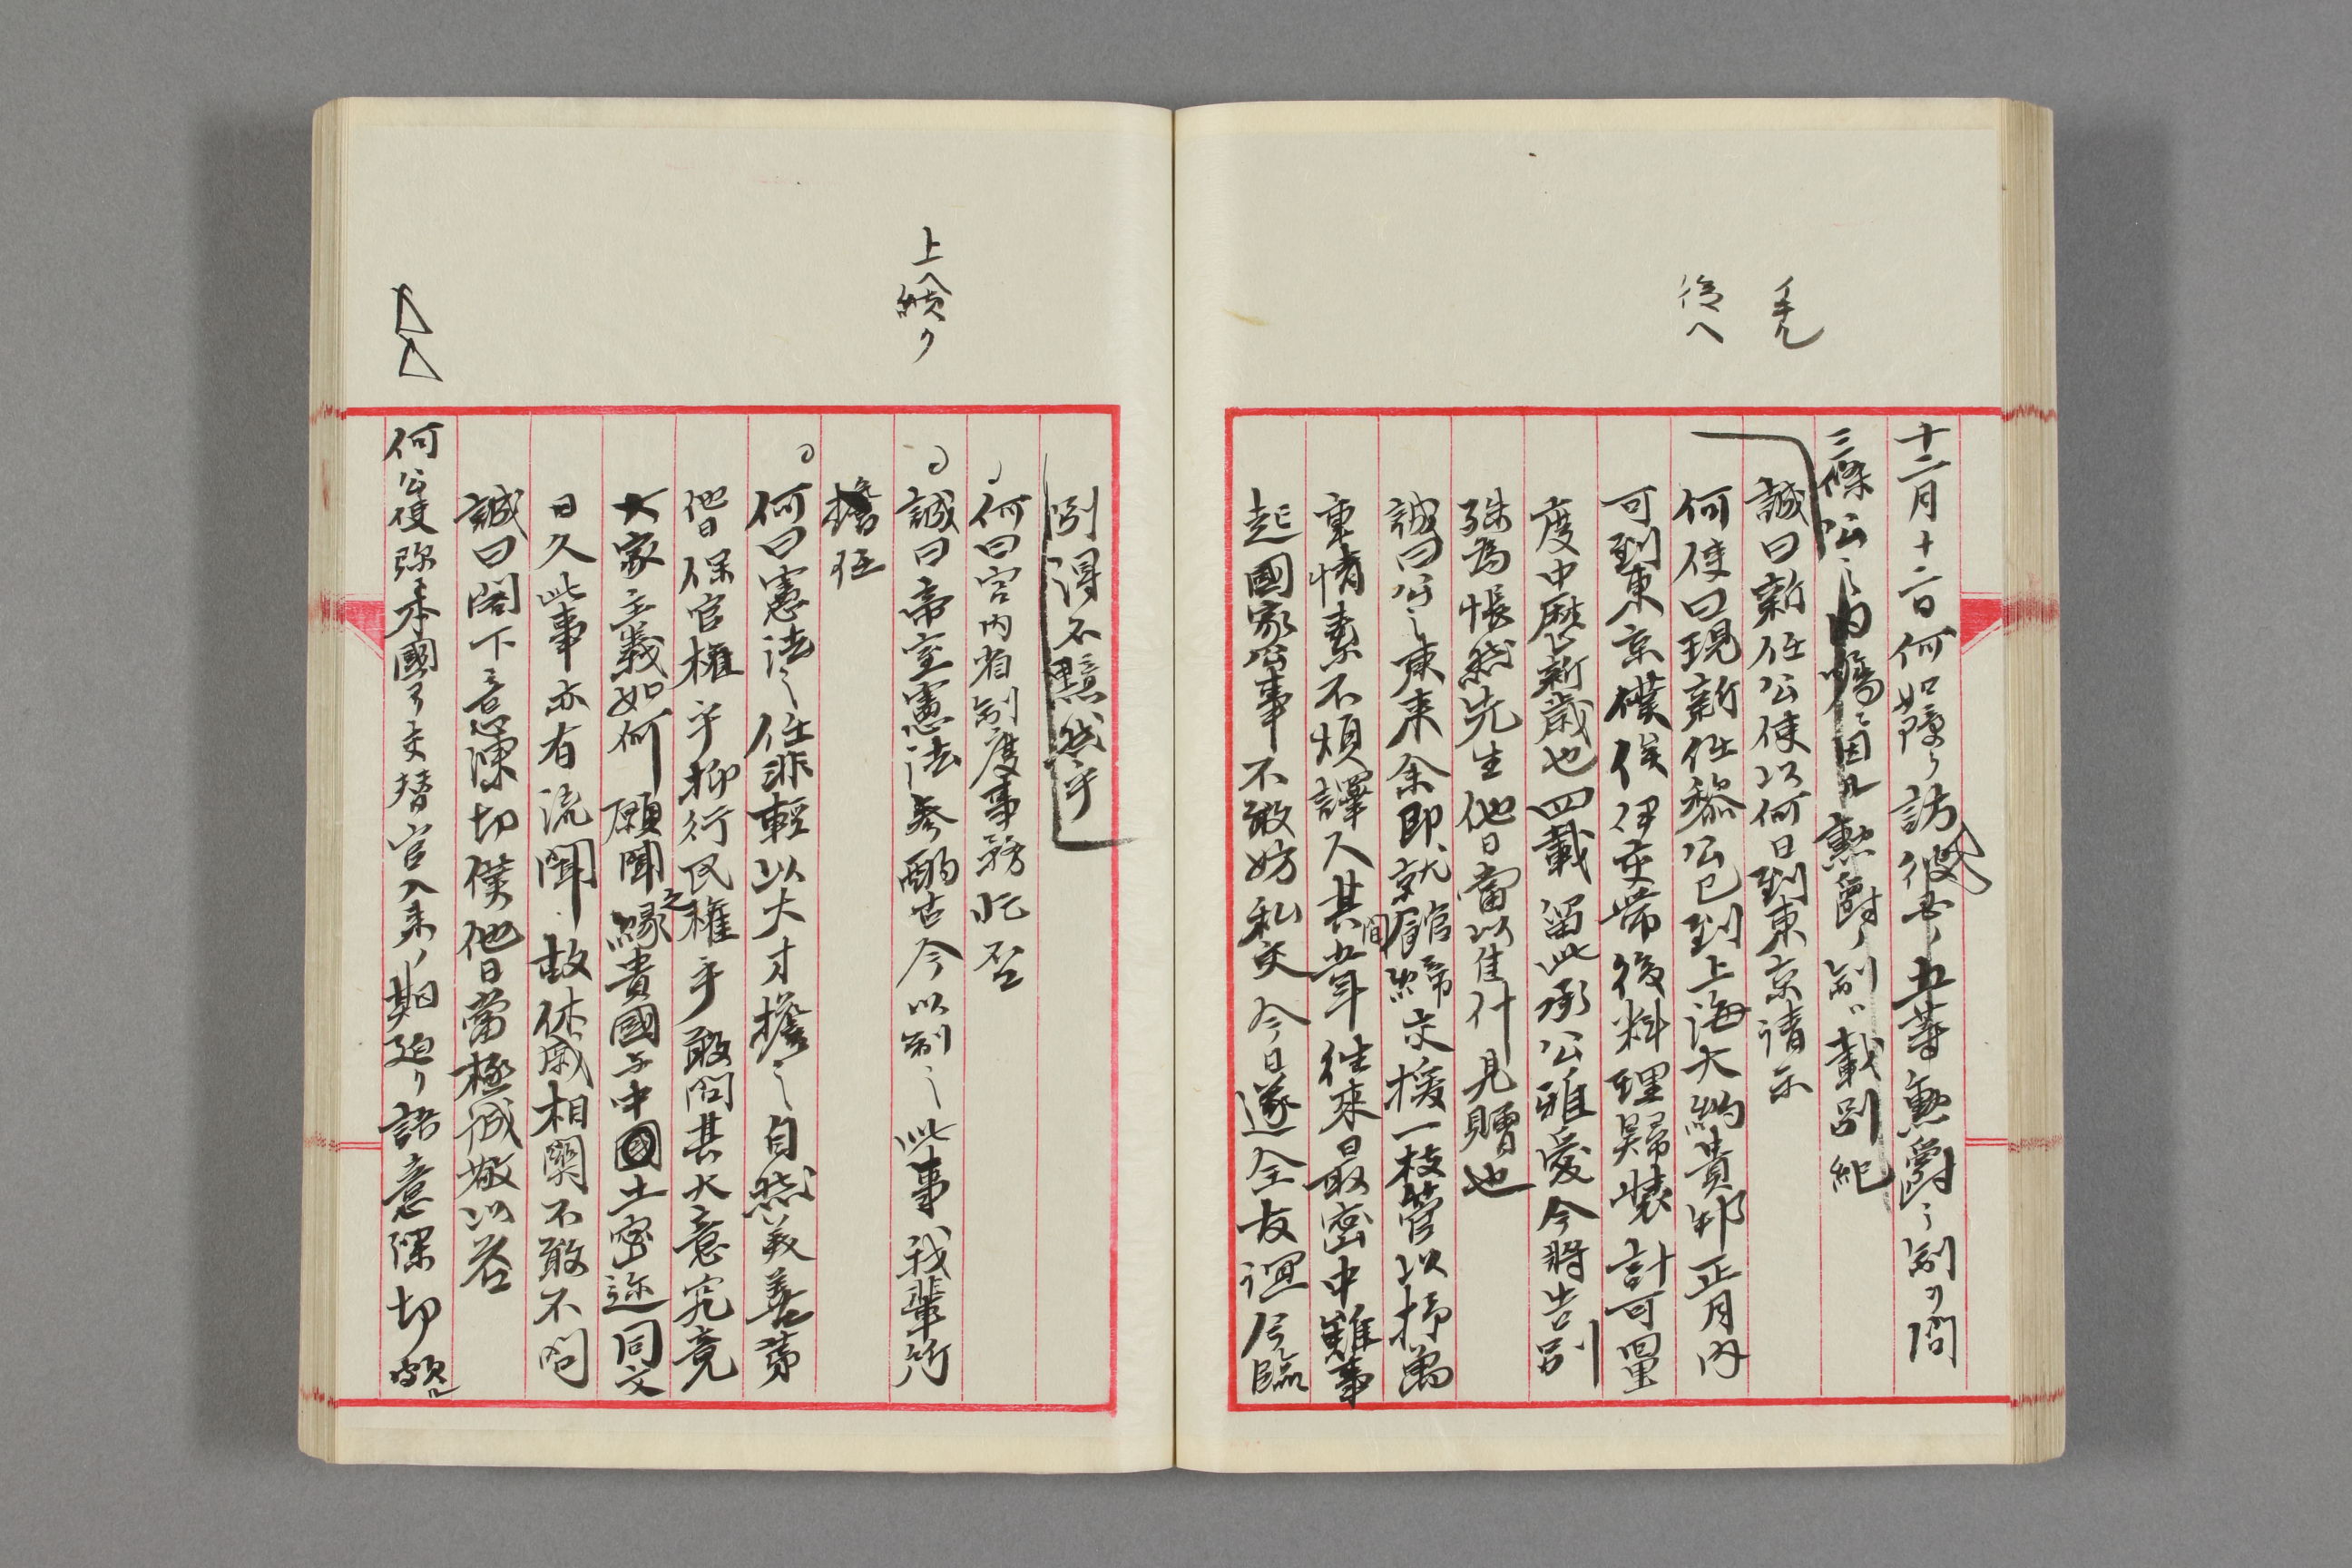 十二月十二日何如璋ヲ訪彼ノ五等勲爵ノ制ヲ問
三條公之内嘱ニ因ル勲爵ノ制ハ載別紀
誠曰新任公使以何日到東京請示
何使曰現新任黎公已到上海大約貴邦正月内
可到東京僕俟伊交帯後料理歸装計可量
度中歷新歳也四載留此承公雅愛今將告別
殊為悵然先生他日當以佳什見贈也
誠曰公之東来余即就館締交援一枝管以抒萬
重情素不煩譯人其間五年往来日最密中雖事
起國家公事不敢妨私交今日遂全友誼今臨
後へ
別得不黯然乎
何曰宮内省制度事務忙否
誠曰帝室憲法参酌古今以制之此事我輩所
擔任
何曰憲法之任非輕以大才擔之自然美善第
他日保官權乎抑行民之權乎敢問其大意究竟
大家主義如何願聞縁貴國与中國土密迩同文
日久此事亦有流聞故休戚相関不敢不問
誠曰閣下意深切僕他日當極誠敬以答
何公使弥本國ヨリ交替官入来ノ期廹リ語意深切頗ル
上へ続ク